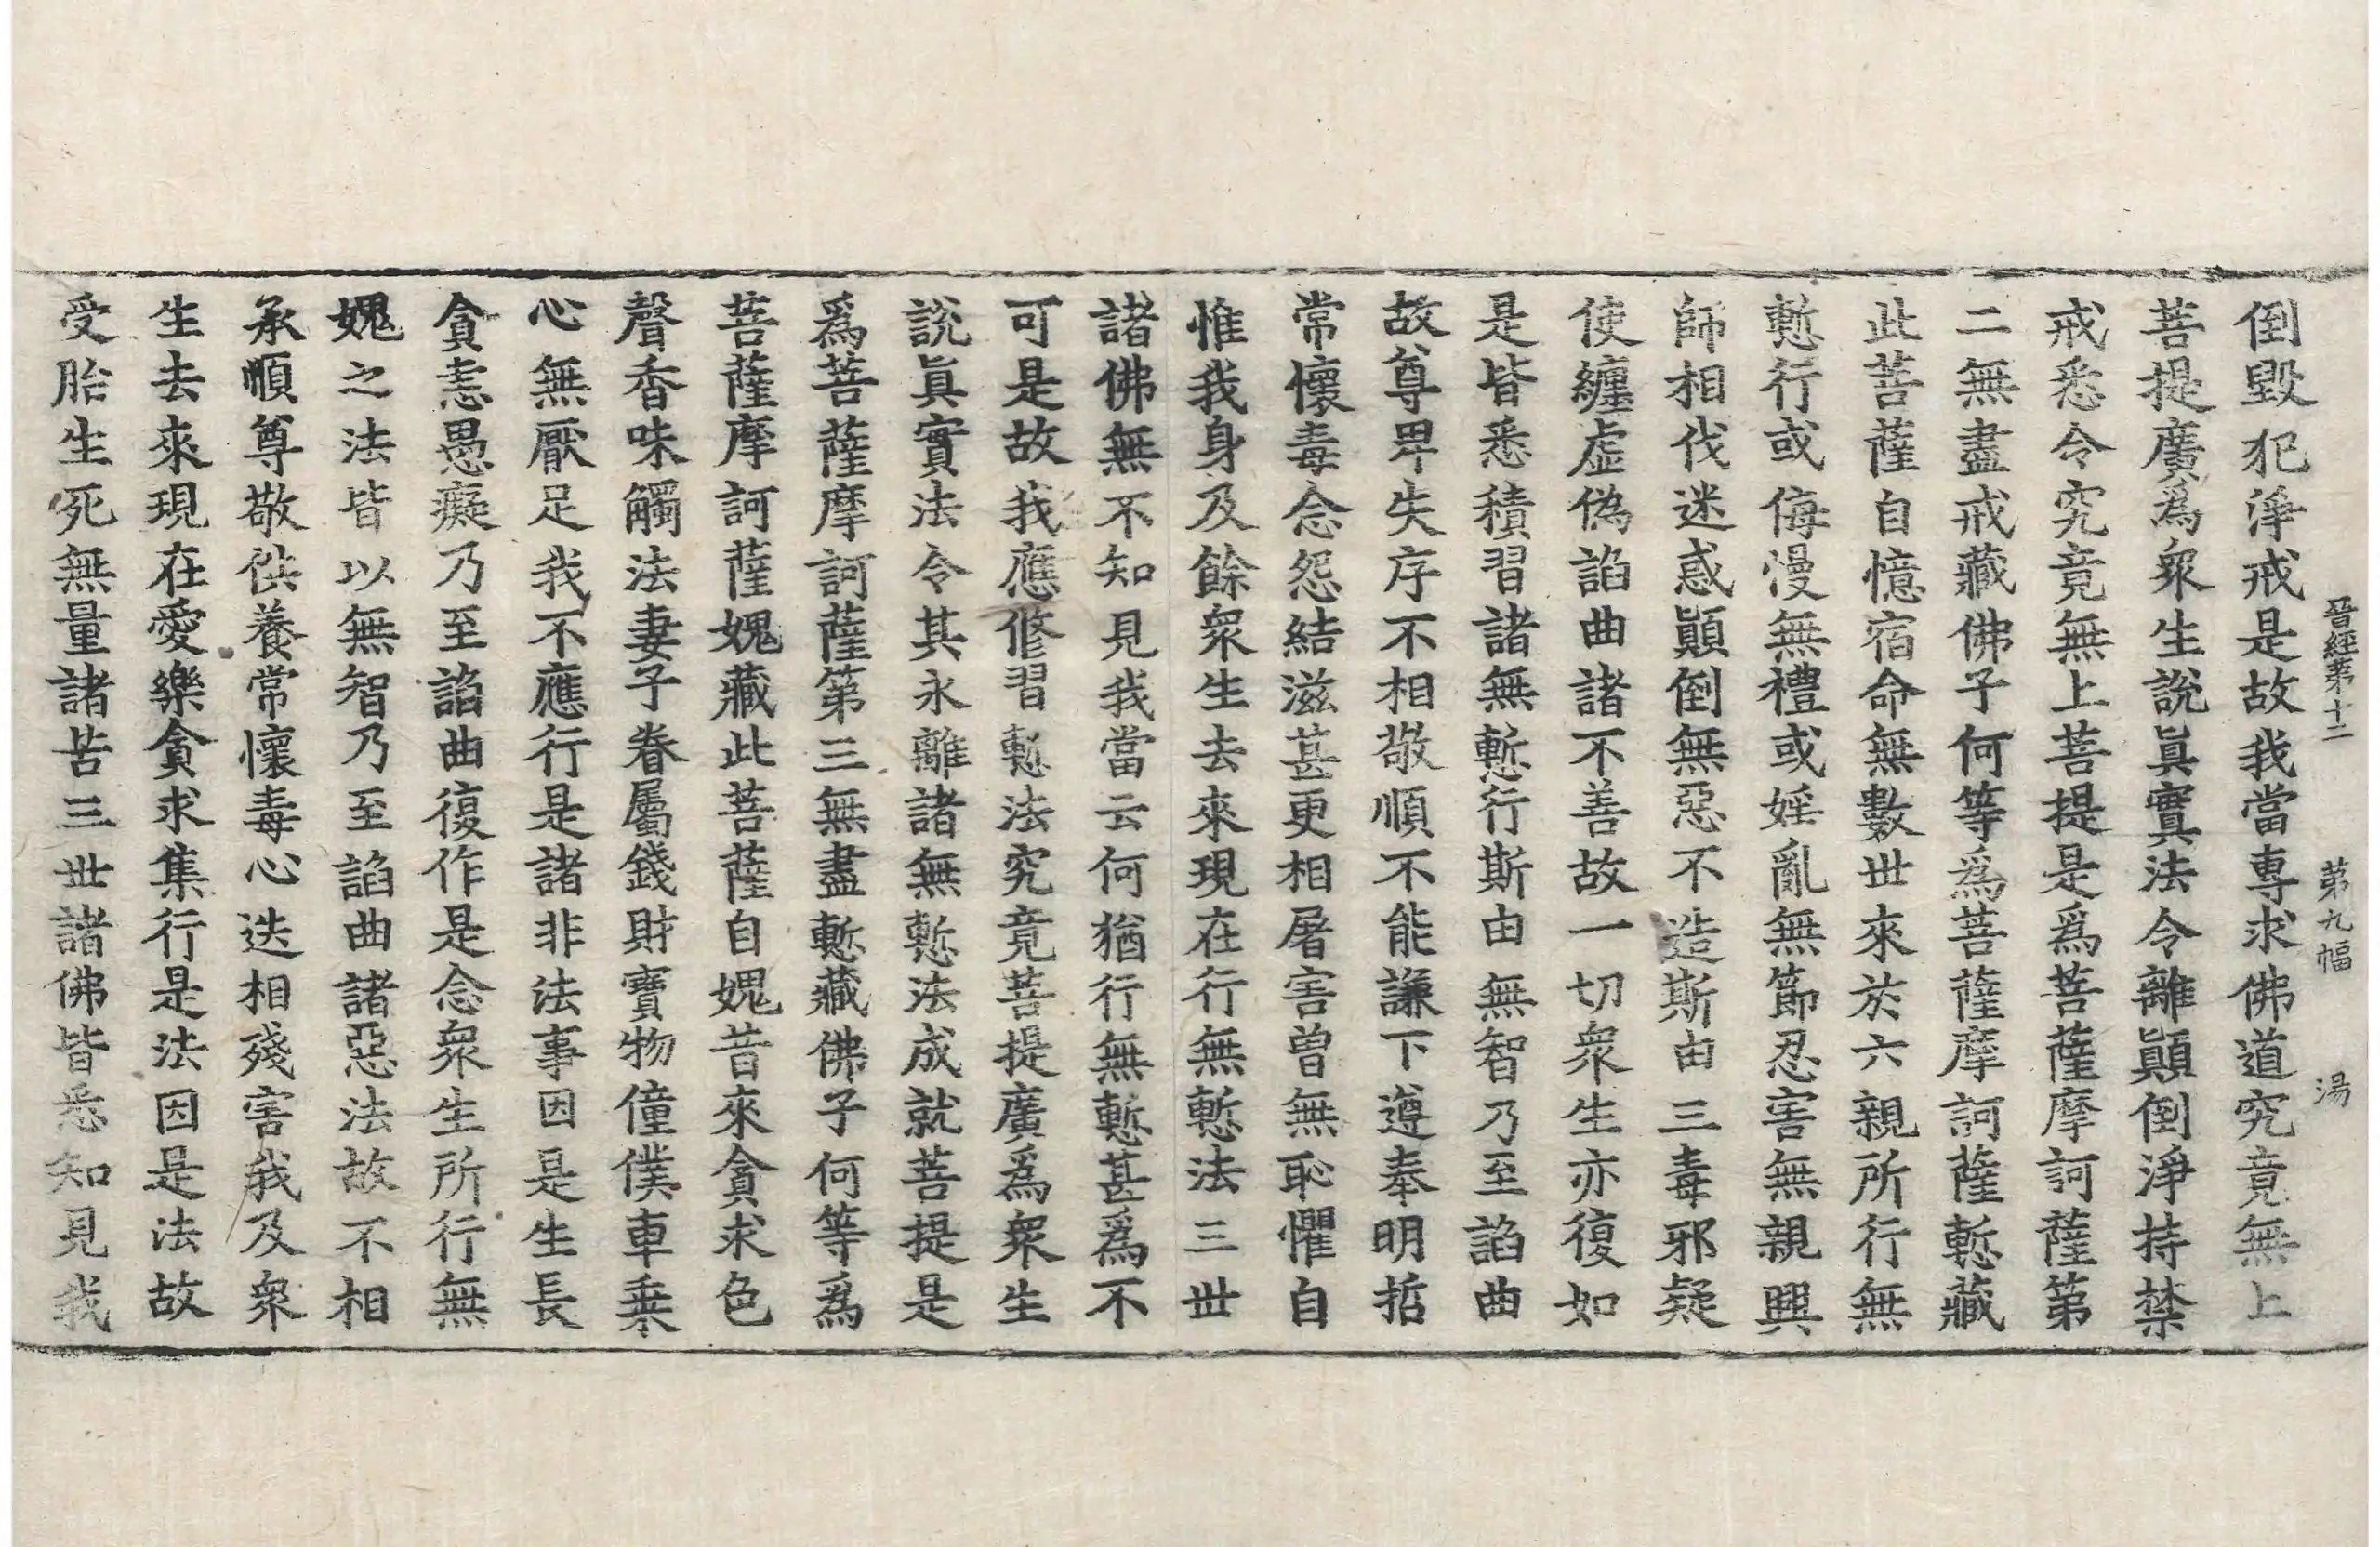 晉經第十二 第九幅 湯
倒毀犯淨戒是故我當專求佛道究竟無上
菩提廣爲衆生說眞實法令離顚倒淨持禁
戒悉令究竟無上菩提是爲菩薩摩訶薩第
二無盡戒藏佛子何等爲菩薩摩訶薩慙藏
此菩薩自憶宿命無數世來於六親所行無
慙行或侮漫無禮或婬亂無節忍害無親興
師相伐迷惑顚倒無惡不造斯由三毒邪疑
使纏虛僞諂曲諸不善故一切衆生亦復如
是皆悉積習諸無慙行斯由無智乃至諂曲
故尊卑失序不相敬順不能謙下遵奉明哲
常懷毒念怨結滋甚更相屠害曾無恥懼自
惟我身及餘衆生去來現在行無慙法三世
諸佛無不知見我當云何猶行無慙甚爲不
可是故我應修習慙法究竟菩提廣爲衆生
說眞實法令其永離諸無慙法成就菩提是
爲菩薩摩訶薩第三無盡慙藏佛子何等爲
菩薩摩訶薩媿藏此菩薩自媿昔來貪求色
聲香味觸法妻子眷屬錢財寶物僮僕車乗
心無厭足我不應行是諸非法事因是生長
貪恚愚癡乃至諂曲復作是念衆生所行無
媿之法皆以無智乃至諂曲諸惡法故不相
承順尊敬供養常懷毒心迭相殘害我及衆
生去來現在愛樂貪求集行是法因是法故
受胎生死無量諸苦三世諸佛皆悉知見我